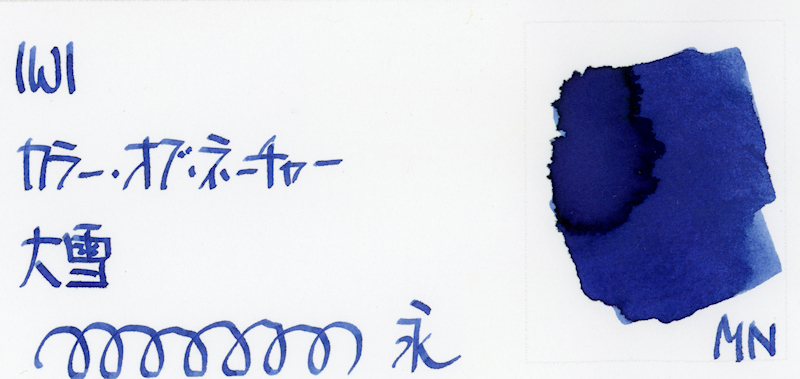 IWI
カラー・オブ・ネーチャー
大雪
永
MN